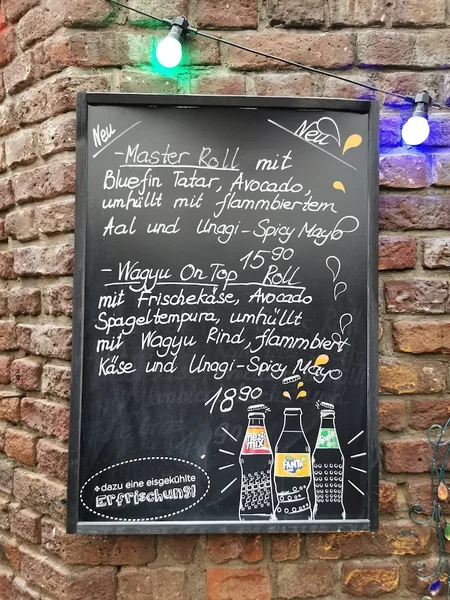 Neu
Neu
-Master Roll mit
Bluefin Tatar, Avocado,
umhüllt mit flammbiertem
Aal und Unagi-Spicy Mayo
15.90
-Wagyu On Top Roll
mit Frischekäse, Avocado
Spageltempura, umhüllt
mit Wagyu Rind, flammbiert
Käse und Unagi-Spicy Mayo
18.90
mezzo
mix
FANTA
Sprite
+ dazu eine eisgekühlte
Erfrischung!